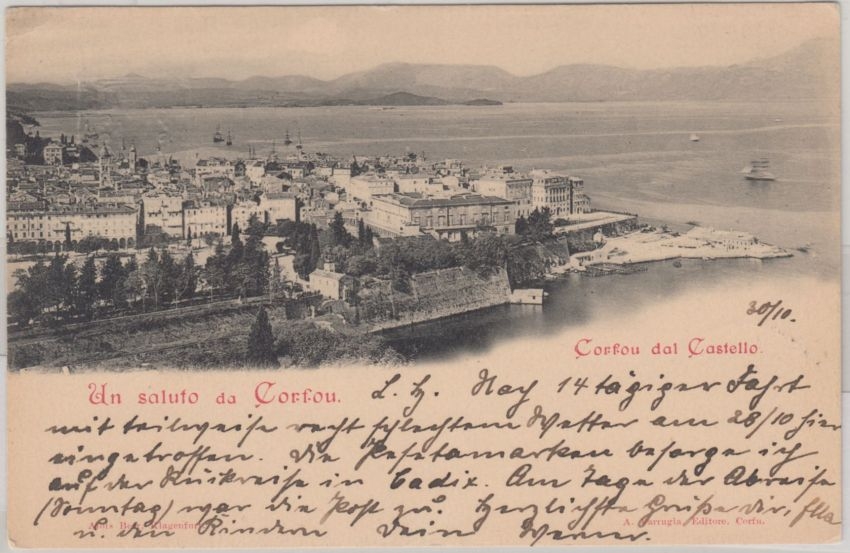 30/10.
Corfou dal Castello.
Un saluto da Corfou.
L. H. Nach 14 tägiger Fahrt
mit teilweise recht schlechtem Wetter am 28/10 hier
eingetroffen. Die Pesetamarken besorge ich
auf der Rückreise in Cadix. Am Tage der Abreise
(Sonntag) war die Post zu. Herzlichste Grüße dir, Ella
u. den Kindern Dein Werner.
Alois Beer, Klagenfurt
A. Farrugia, Editore, Corfu.